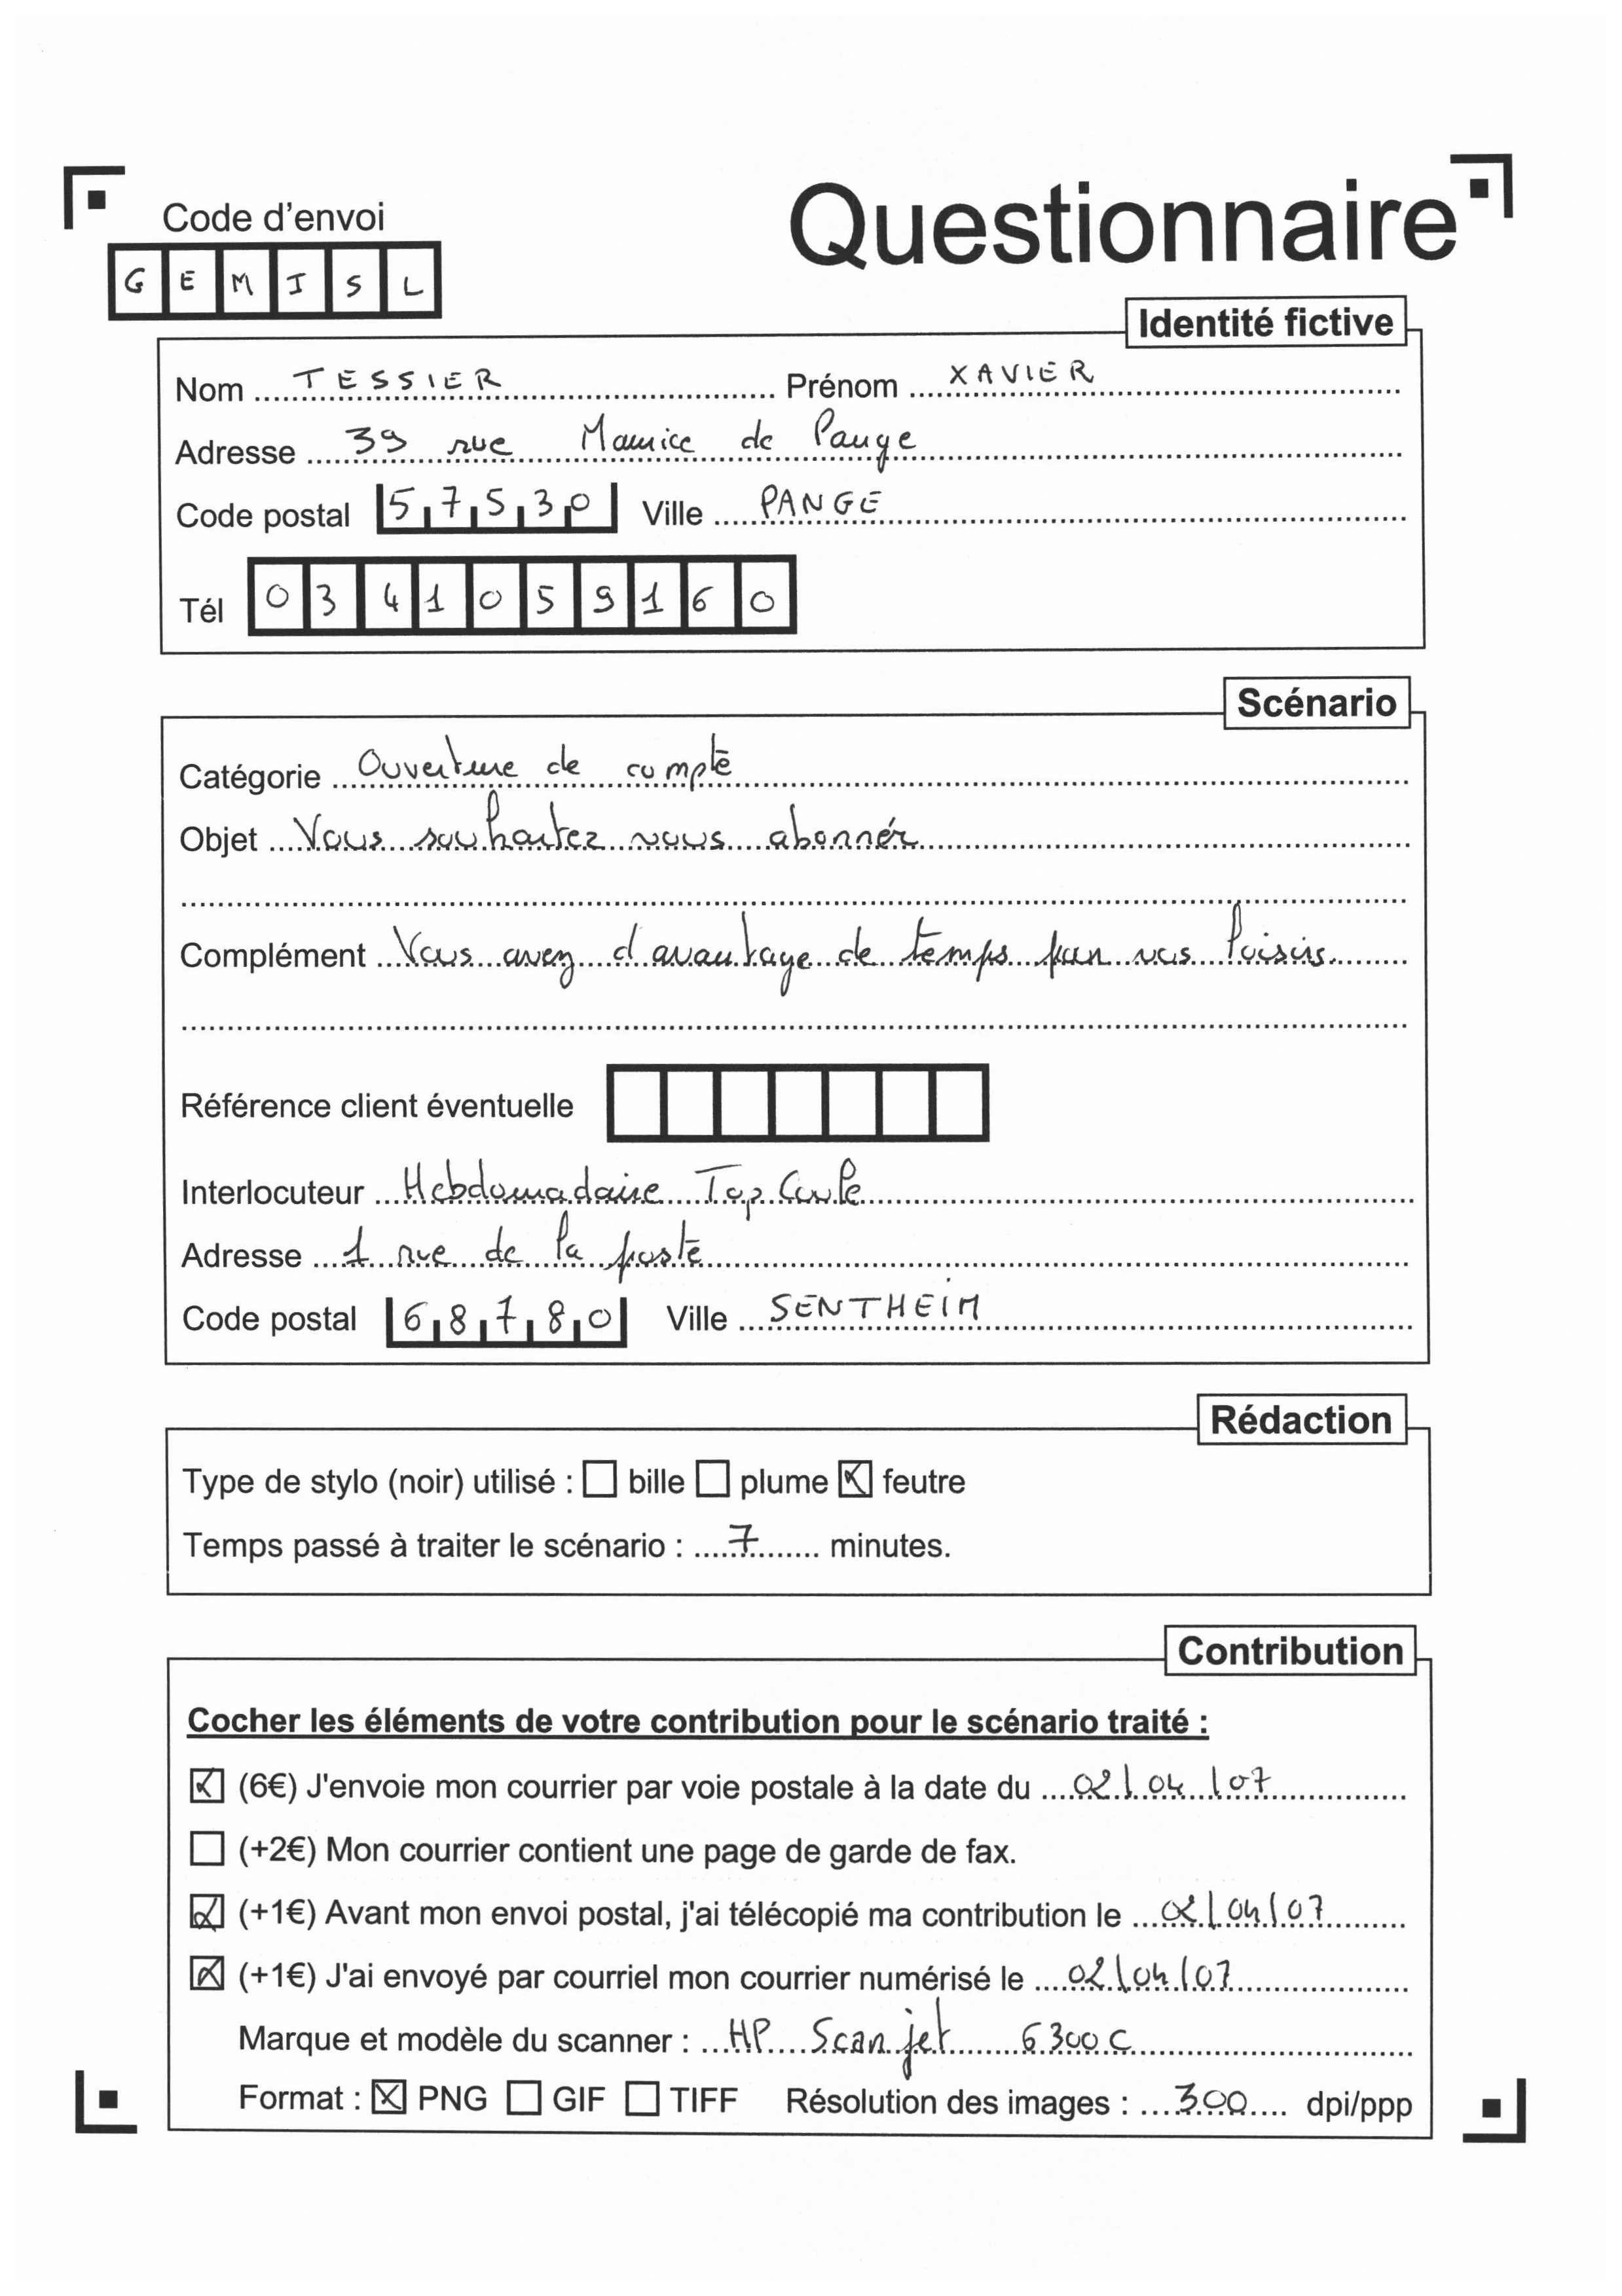 Questionnaire
Code d'envoi
G E M I S L
Identité fictive
Nom TESSIER Prénom XAVIER
Adresse 39 rue Maurice de Pange
Code postal 57530 Ville PANGE
Tél 0341059160
Scénario
Catégorie Ouverture de compte
Objet Vous souhaitez vous abonner
Complément Vous avez d'avantage de temps pour vos loisirs.
Référence client éventuelle
Interlocuteur Hebdomadaire Top
Adresse 1 rue de la poste
Code postal 68780 Ville SENTHEIM
Rédaction
Type de stylo (noir) utilisé : bille plume feutre
Temps passé à traiter le scénario : 7 minutes.
Contribution
Cocher les éléments de votre contribution pour le scénario traité :
(6€) J'envoie mon courrier par voie postale à la date du 02/04/07
(+2€) Mon courrier contient une page de garde de fax.
(+1€) Avant mon envoi postal, j'ai télécopié ma contribution le 02/04/07
(+1€) J'ai envoyé par courriel mon courrier numérisé le 02/04/07
Marque et modèle du scanner : HP Scanjet 6300C
Format : PNG GIF TIFF Résolution des images : 300 dpi/ppp